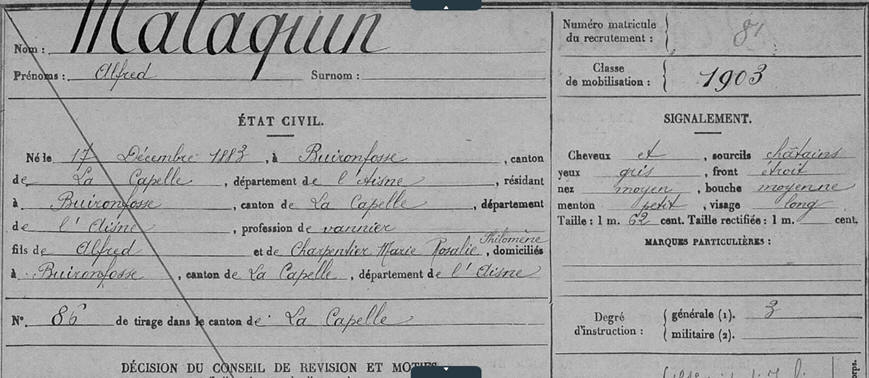 Nom : Malaquin
Prénoms : Alfred Surnom :
ÉTAT CIVIL.
Né le 17 Décembre 1883, à Buironfosse, canton
de La Capelle, département de l'Aisne, résidant
à Buironfosse, canton de La Capelle, département
de l'Aisne, profession de vannier
fils de Alfred et de Charpentier Marie Rosalie Philomène, domiciliés
à Buironfosse, canton de La Capelle, département de l'Aisne
N° 86 de tirage dans le canton de La Capelle
DÉCISION DU CONSEIL DE REVISION ET MOTIFS
Numéro matricule
du recrutement : 81
Classe
de mobilisation : 1903
SIGNALEMENT.
Cheveux et, sourcils châtains
yeux gris, front étroit
nez moyen, bouche moyenne
menton petit, visage long
Taille : 1 m. 62 cent. Taille rectifiée : 1 m. cent.
MARQUES PARTICULIÈRES :
Degré
d'instruction : générale (1). 3
militaire (2).